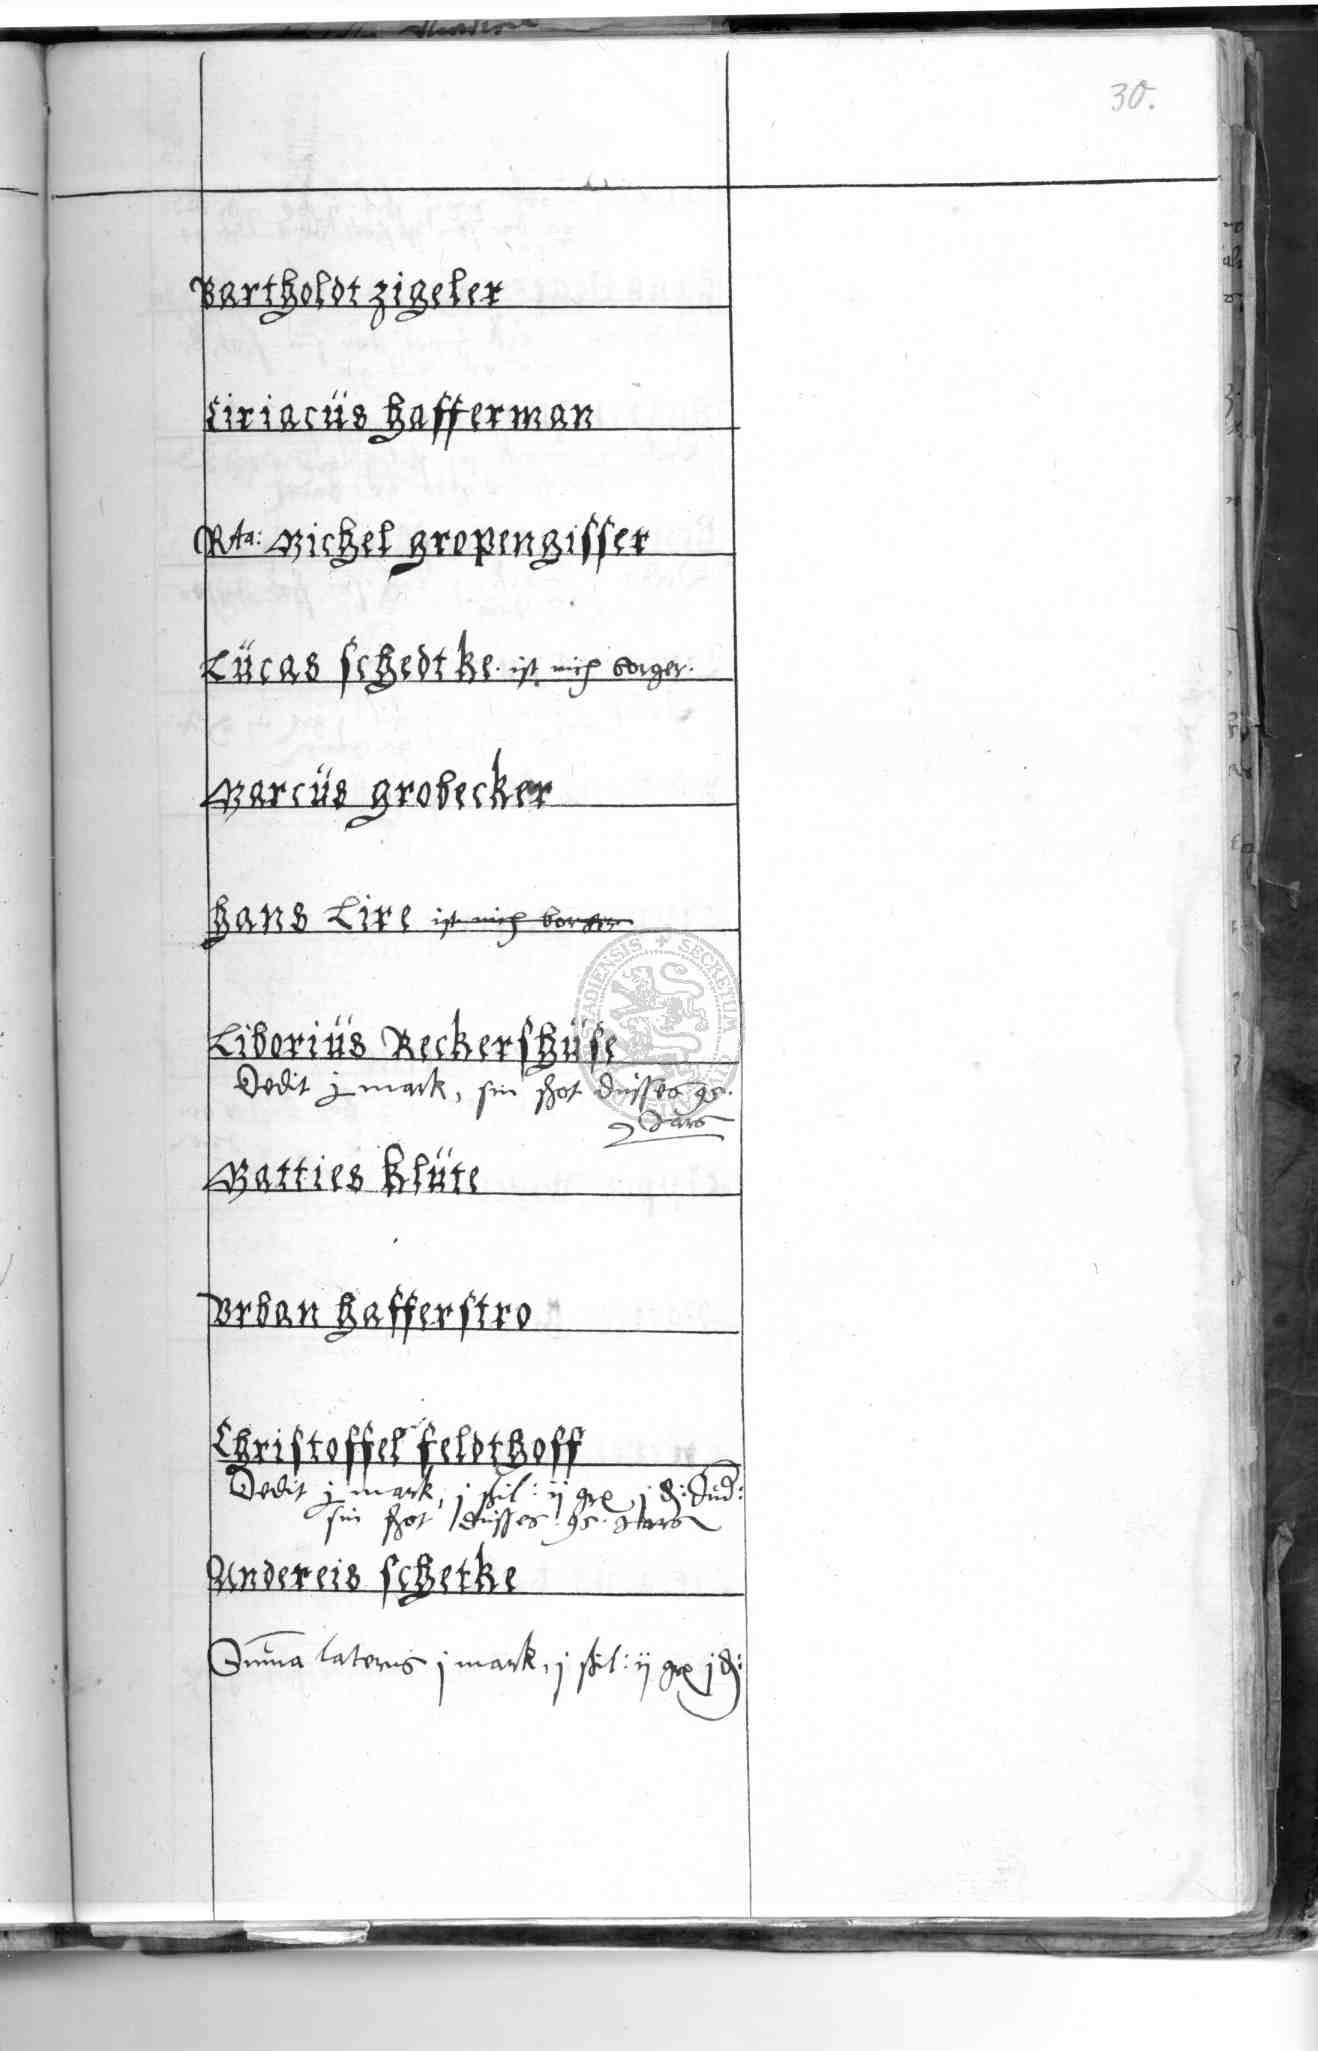 30.
Bartholdt zigeler
Ciriacüs hafferman
Rta: Michel gropengisser
Lücas schedtke. ist nich borger.
Marcüs grobecker
hans Lire ist nich borger
SECRETUM
Liboriüs Reckershüse
Dedit j mark, sin schot disses 95.
Jars
Matties klüte
Vrban hafferstro
Christoffel feldthoff
Dedit j mark, j schil: ij gr j d:
sin schot disses 95. Jars
Andereis schetke
Sum̄a lateris j mark, j schil: ij gr j d: